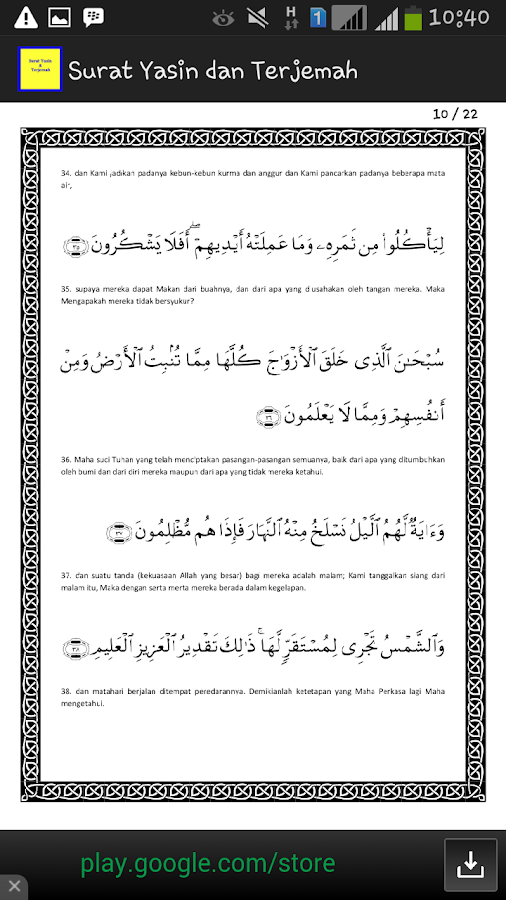 H
1
10:40
Surat Yasin
&
Terjemah
Surat Yasin dan Terjemah
10 / 22
34. dan Kami jadikan padanya kebun-kebun kurma dan anggur dan Kami pancarkan padanya beberapa mata
air,
لِيَأْكُلُوا۟ مِن ثَمَرِهِۦ وَمَا عَمِلَتْهُ أَيْدِيهِمْ ۖ أَفَلَا يَشْكُرُونَ ﴿٣٥﴾
35. supaya mereka dapat Makan dari buahnya, dan dari apa yang diusahakan oleh tangan mereka. Maka
Mengapakah mereka tidak bersyukur?
سُبْحَـٰنَ ٱلَّذِى خَلَقَ ٱلْأَزْوَٰجَ كُلَّهَا مِمَّا تُنۢبِتُ ٱلْأَرْضُ وَمِنْ
أَنفُسِهِمْ وَمِمَّا لَا يَعْلَمُونَ ﴿٣٦﴾
36. Maha suci Tuhan yang telah menciptakan pasangan-pasangan semuanya, baik dari apa yang ditumbuhkan
oleh bumi dan dari diri mereka maupun dari apa yang tidak mereka ketahui.
وَءَايَةٌ لَّهُمُ ٱلَّيْلُ نَسْلَخُ مِنْهُ ٱلنَّهَارَ فَإِذَا هُم مُّظْلِمُونَ ﴿٣٧﴾
37. dan suatu tanda (kekuasaan Allah yang besar) bagi mereka adalah malam; Kami tanggalkan siang dari
malam itu, Maka dengan serta merta mereka berada dalam kegelapan.
وَٱلشَّمْسُ تَجْرِى لِمُسْتَقَرٍّ لَّهَا ۚ ذَٰلِكَ تَقْدِيرُ ٱلْعَزِيزِ ٱلْعَلِيمِ ﴿٣٨﴾
38. dan matahari berjalan ditempat peredarannya. Demikianlah ketetapan yang Maha Perkasa lagi Maha
mengetahui.
play.google.com/store